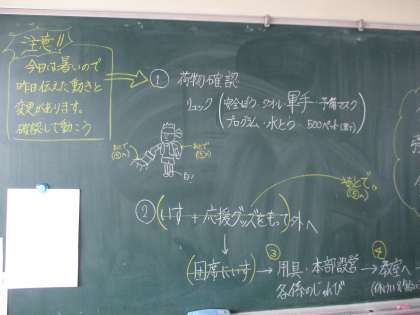 注意!!
今日は暑いので
昨日伝えた動きと
変更があります。
確認して動こう
① 荷物確認
リュック(安全ぼう・タオル・軍手・予備マスク
プログラム・水とう・500ペット
あとで。
② (いす + 応援グッズをもって)外へ
↓
(自席にいす) → ③ 用具・本部設営 → ④ 教室へ
各係のじゅんび